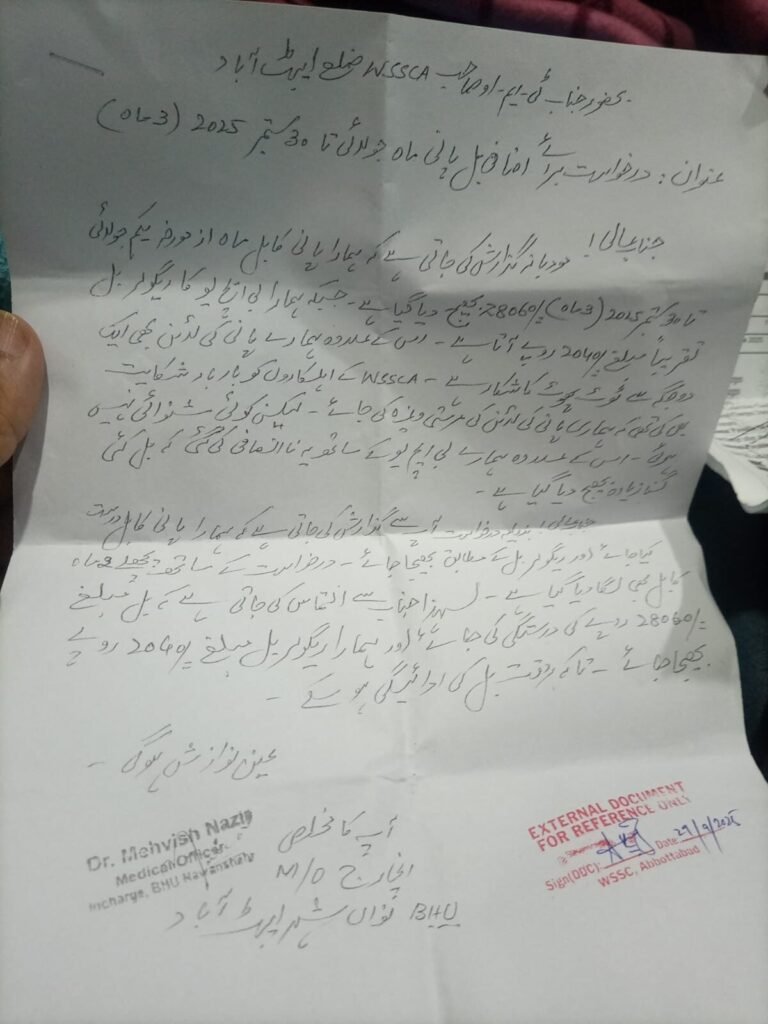 بحضور جناب ٹی-ایم-او صاحب WSSCA ضلع ایبٹ آباد
عنوان: درخواست برائے اضافی بل پانی ماہ جولائی تا 30 ستمبر 2025 (3 ماہ)
جناب عالی! مودبانہ گزارش کی جاتی ہے کہ ہمارا پانی کا بل ماہ از مورخہ یکم جولائی
تا 30 ستمبر 2025 (3 ماہ) 28060/- بھیج دیا گیا ہے۔ جبکہ ہمارا بی ایچ یو کا ریگولر بل
تقریباً مبلغ 2040/- روپے آتا ہے۔ اس کے علاوہ ہمارے پانی کی لائن بھی ایک
دو جگہ سے ٹوٹ پھوٹ کا شکار ہے۔ WSSCA کے اہلکاروں کو بار بار شکایت
بھی کی گئی کہ ہماری پانی کی لائن کی مرمتی وغیرہ کی جائے۔ لیکن کوئی شنوائی نہیں
ہوئی۔ اس کے علاوہ ہمارے بی ایچ یو کے ساتھ یہ ناانصافی کی گئی کہ بل کئی
گنا زیادہ بھیج دیا گیا ہے۔
جناب عالی! بذریعہ درخواست آپ سے گزارش کی جاتی ہے کہ ہمارا پانی کا بل درست
کیا جائے اور ریگولر بل کے مطابق بھیجا جائے۔ درخواست کے ساتھ پچھلے ماہ
کا بل بھی لگا دیا گیا ہے۔ لہذا جناب سے التماس کی جاتی ہے کہ بل مبلغ
28060/- روپے کی درستگی کی جائے اور ہمارا ریگولر بل مبلغ 2040/- روپے
بھیجا جائے۔ تاکہ بروقت بل کی ادائیگی ہو سکے۔
عین نوازش ہوگی۔
آپ کا مخلص
انچارج M/O
BHU نواں شہر ایبٹ آباد
Dr. Mehvish Nazir
Medical Officer
Incharge, BHU Nawanshehr
EXTERNAL DOCUMENT
FOR REFERENCE ONLY
Sign(DDC): Date 29/9/2025
WSSC, Abbottabad